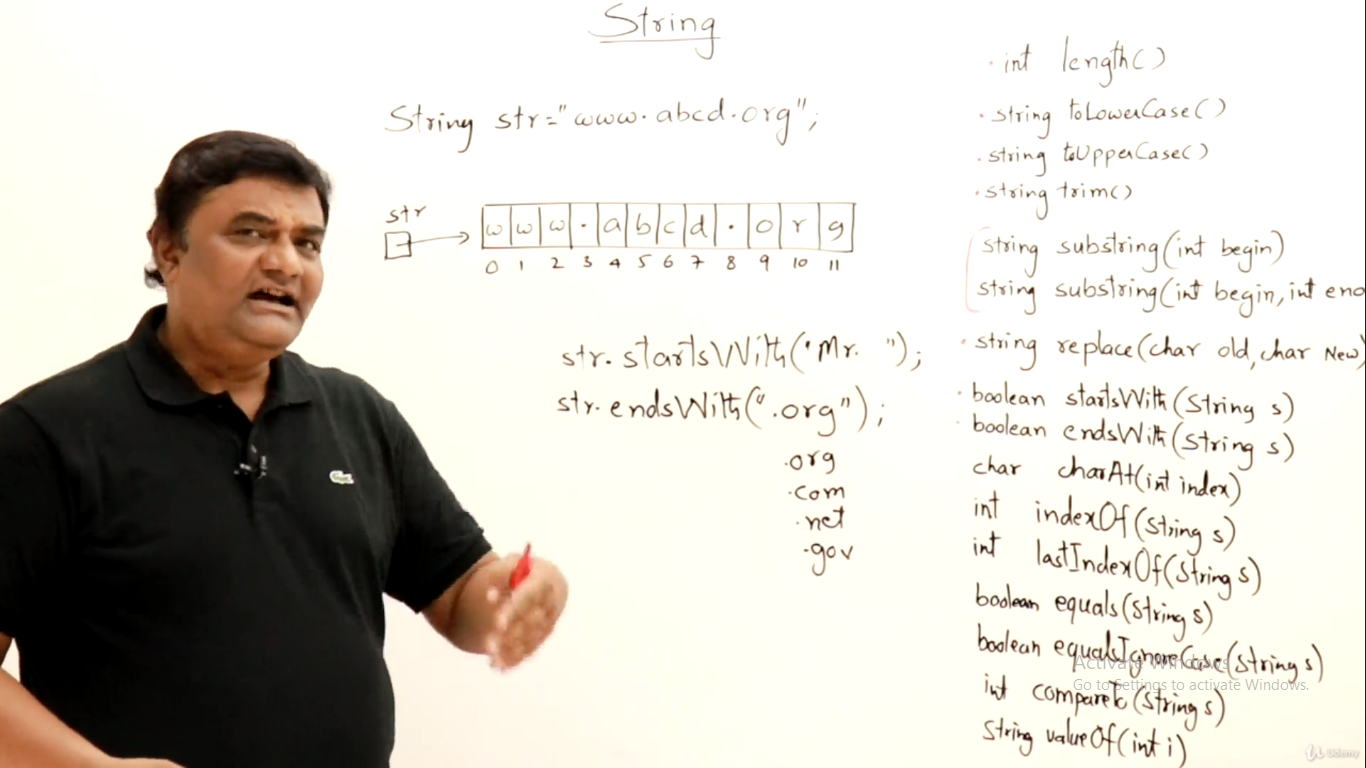 String
String str="www.abcd.org";
str
w w w . a b c d . o r g
0 1 2 3 4 5 6 7 8 9 10 11
str.startsWith("Mr. ");
str.endsWith(".org");
.org
.com
.net
.gov
· int length()
· string toLowerCase()
· string toUpperCase()
· string trim()
string substring(int begin)
string substring(int begin, int end
· string replace(char old, char New)
· boolean startsWith(String s)
· boolean endsWith(String s)
char charAt(int index)
int indexOf(String s)
int lastIndexOf(String s)
boolean equals(String s)
boolean equalsIgnoreCase(String s)
int compareTo(String s)
String valueOf(int i)
Activate Windows
Go to Settings to activate Windows.
Udemy